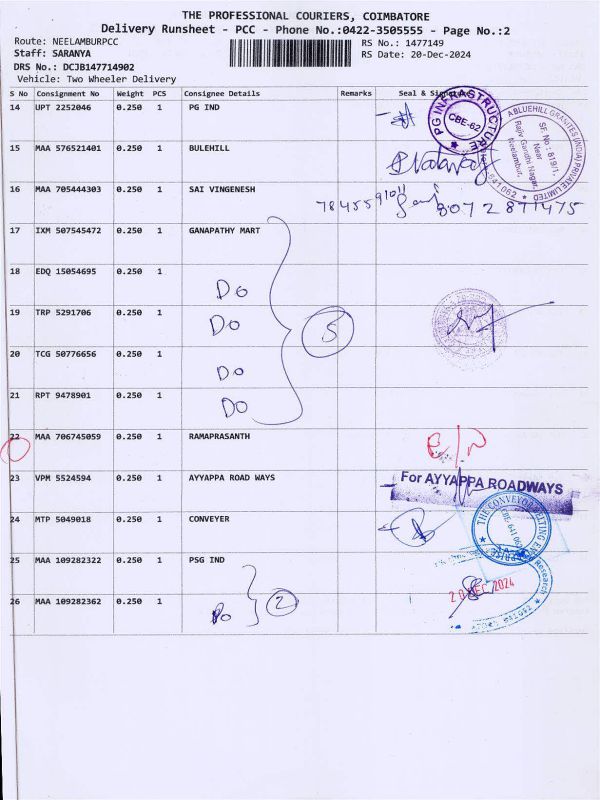 THE PROFESSIONAL COURIERS, COIMBATORE
Delivery Runsheet - PCC - Phone No.:0422-3505555 - Page No.:2
Route: NEELAMBURPCC
Staff: SARANYA
DRS No.: DCJB147714902
Vehicle: Two Wheeler Delivery
RS No.: 1477149
RS Date: 20-Dec-2024
S No Consignment No Weight PCS Consignee Details Remarks Seal & Signature
14 UPT 2252046 0.250 1 PG IND
PG INFRASTRUCTURE
CBE-62
ABLUEHILL GRANITES (INDIA) PRIVATE LIMITED
SF. No : 819/1,
Near
Rajiv Gandhi Nagar,
Neelambur,
641 062
15 MAA 576521401 0.250 1 BULEHILL
16 MAA 705444303 0.250 1 SAI VINGENESH
8072871475
17 IXM 507545472 0.250 1 GANAPATHY MART
18 EDQ 15054695 0.250 1
Do
19 TRP 5291706 0.250 1
Do
5
20 TCG 50776656 0.250 1
Do
21 RPT 9478901 0.250 1
Do
22 MAA 706745059 0.250 1 RAMAPRASANTH
23 VPM 5524594 0.250 1 AYYAPPA ROAD WAYS
For AYYAPPA ROADWAYS
24 MTP 5049018 0.250 1 CONVEYER
THE CONVEYOR BELTING
CBE-641 062
25 MAA 109282322 0.250 1 PSG IND
Research
20 DEC 2024
26 MAA 109282362 0.250 1
Do
2
641062